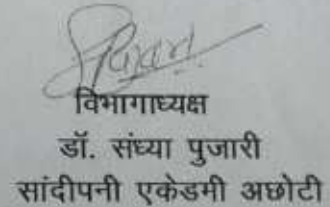 विभागाध्यक्ष
डॉ. संध्या पुजारी
सांदीपनी एकेडमी अछोटी